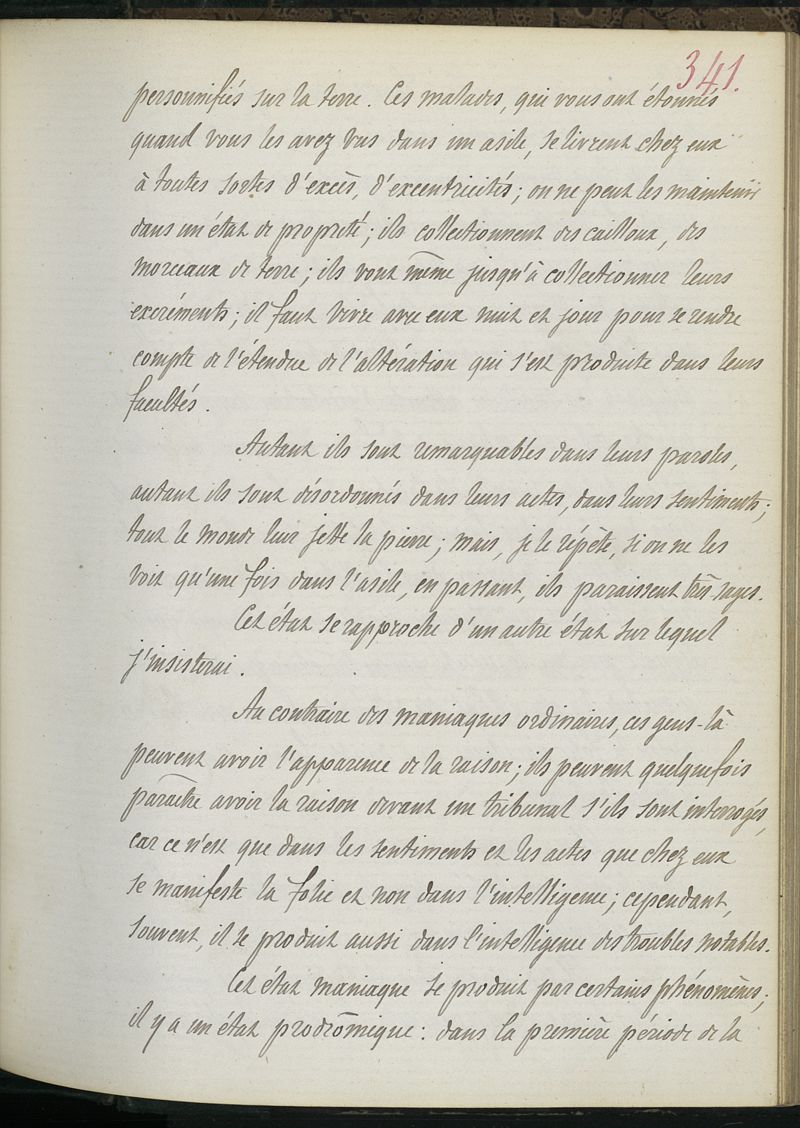 341.
personnifiés sur la terre. Ces malades, qui vous ont étonnés
quand vous les avez vus dans un asile, se livrent chez eux
à toutes sortes d'excès, d'excentricités; on ne peut les maintenir
dans un état de propreté; ils collectionnent des cailloux, des
morceaux de terre; ils vont même jusqu'à collectionner leurs
excréments; il faut vivre avec eux nuit et jour pour se rendre
compte de l'étendue de l'altération qui s'est produite dans leurs
facultés.
Autant ils sont remarquables dans leurs paroles,
autant ils sont désordonnés dans leurs actes, dans leurs sentiments;
tout le monde leur jette la pierre; mais, je le répète, si on ne les
voit qu'une fois dans l'asile, en passant, ils paraissent très sages.
Cet état se rapproche d'un autre état sur lequel
j'insisterai.
Au contraire des maniaques ordinaires, ces gens-là
peuvent avoir l'apparence de la raison; ils peuvent quelquefois
paraître avoir la raison devant un tribunal s'ils sont interrogés,
car ce n'est que dans les sentiments et les actes que chez eux
se manifeste la folie et non dans l'intelligence; cependant,
souvent, il se produit aussi dans l'intelligence des troubles notables.
Cet état maniaque se produit par certains phénomènes;
il y a un état prodrômique: dans la première période de la